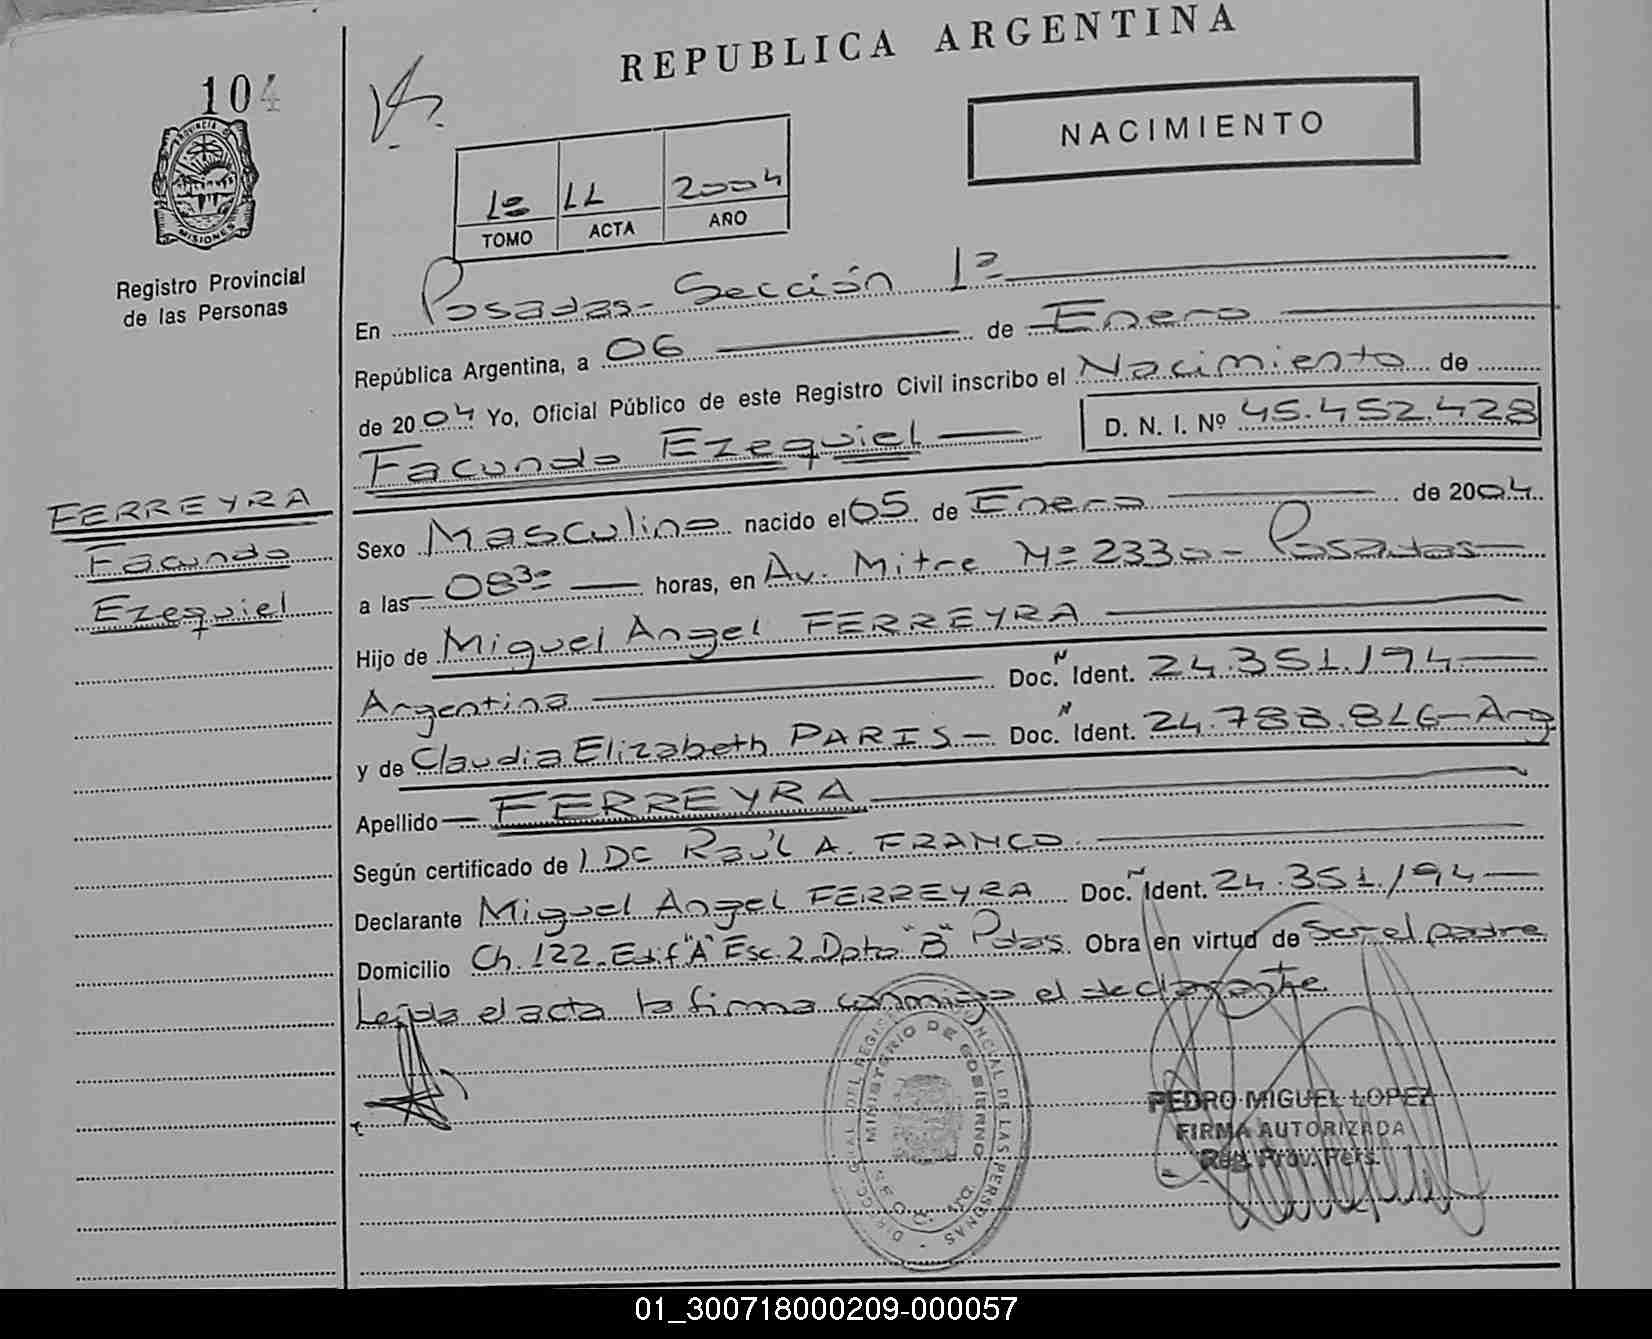 REPUBLICA ARGENTINA
104
NACIMIENTO
PROVINCIA DE
MISIONES
1º 11 2004
TOMO ACTA AÑO
Registro Provincial
de las Personas
En Posadas - Sección 1ª
República Argentina, a 06 de Enero
de 2004 Yo, Oficial Público de este Registro Civil inscribo el Nacimiento de
D. N. I. Nº 45.452.428
Facundo Ezequiel
FERREYRA
Facundo
Ezequiel
Sexo Masculino nacido el 05 de Enero de 2004
a las 08³⁰ horas, en Av. Mitre Nº 2330 - Posadas
Hijo de Miguel Angel FERREYRA
Argentina Doc. N Ident. 24.351.194
y de Claudia Elizabeth PARIS - Doc. N Ident. 24.788.816 - Arg
Apellido FERREYRA
Según certificado de Raúl A. FRANCO
Declarante Miguel Angel FERREYRA Doc. N Ident. 24.351.194
Domicilio Ch. 122 - Edif "A" Esc. 2 Dpto "B" Pdas. Obra en virtud de ser el padre
Leída el acta la firma conmigo el declarante
MINISTERIO DE GOBIERNO
PEDRO MIGUEL LOPEZ
FIRMA AUTORIZADA
Reg. Prov. Pers.
01_300718000209-000057